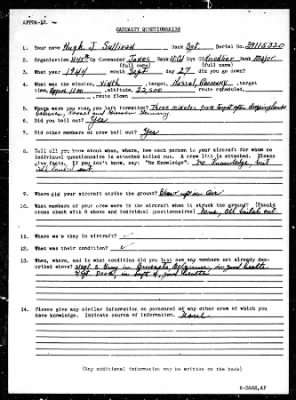 CASUALTY QUESTIONNAIRE
1. Your name Hugh J Sullivan Rank Sgt. Serial No. 39115320
2. Organization 445th Gp Commander Jones Rank Col Sqn CO Rank Major
(full name) (full name)
3. What year 1944 month Sept day 27 did you go down?
4. What was the mission, Ninth, target, Kassel, Germany, target
time, , altitude, 22,500 route scheduled,
, route flown
5. Where were you when you left formation? Three minutes from target after dropping bombs
between, Kassel and Germany
6. Did you bail out? Yes
7. Did other members of crew bail out? Yes
8. Tell all you know about when, where, how each person in your aircraft for whom no
individual questionnaire is attached bailed out. A crew list is attached. Please
give facts. If you don't know, say: "No Knowledge". No knowledge but
all bailed out.
9. Where did your aircraft strike the ground? Blew up in air
10. What members of your crew were in the aircraft when it struck the ground? (Should
cross check with 8 above and individual questionnaires) None, all bailed out
11. Where were they in aircraft? ✓
12. What was their condition? ✓
13. When, where, and in what condition did you last see any members not already des-
cribed above? in good health.
14. Please give any similar information on personnel of any other crew of which you
have knowledge. Indicate source of information. None
(Any additional information may be written on the back)
6-3862,AF